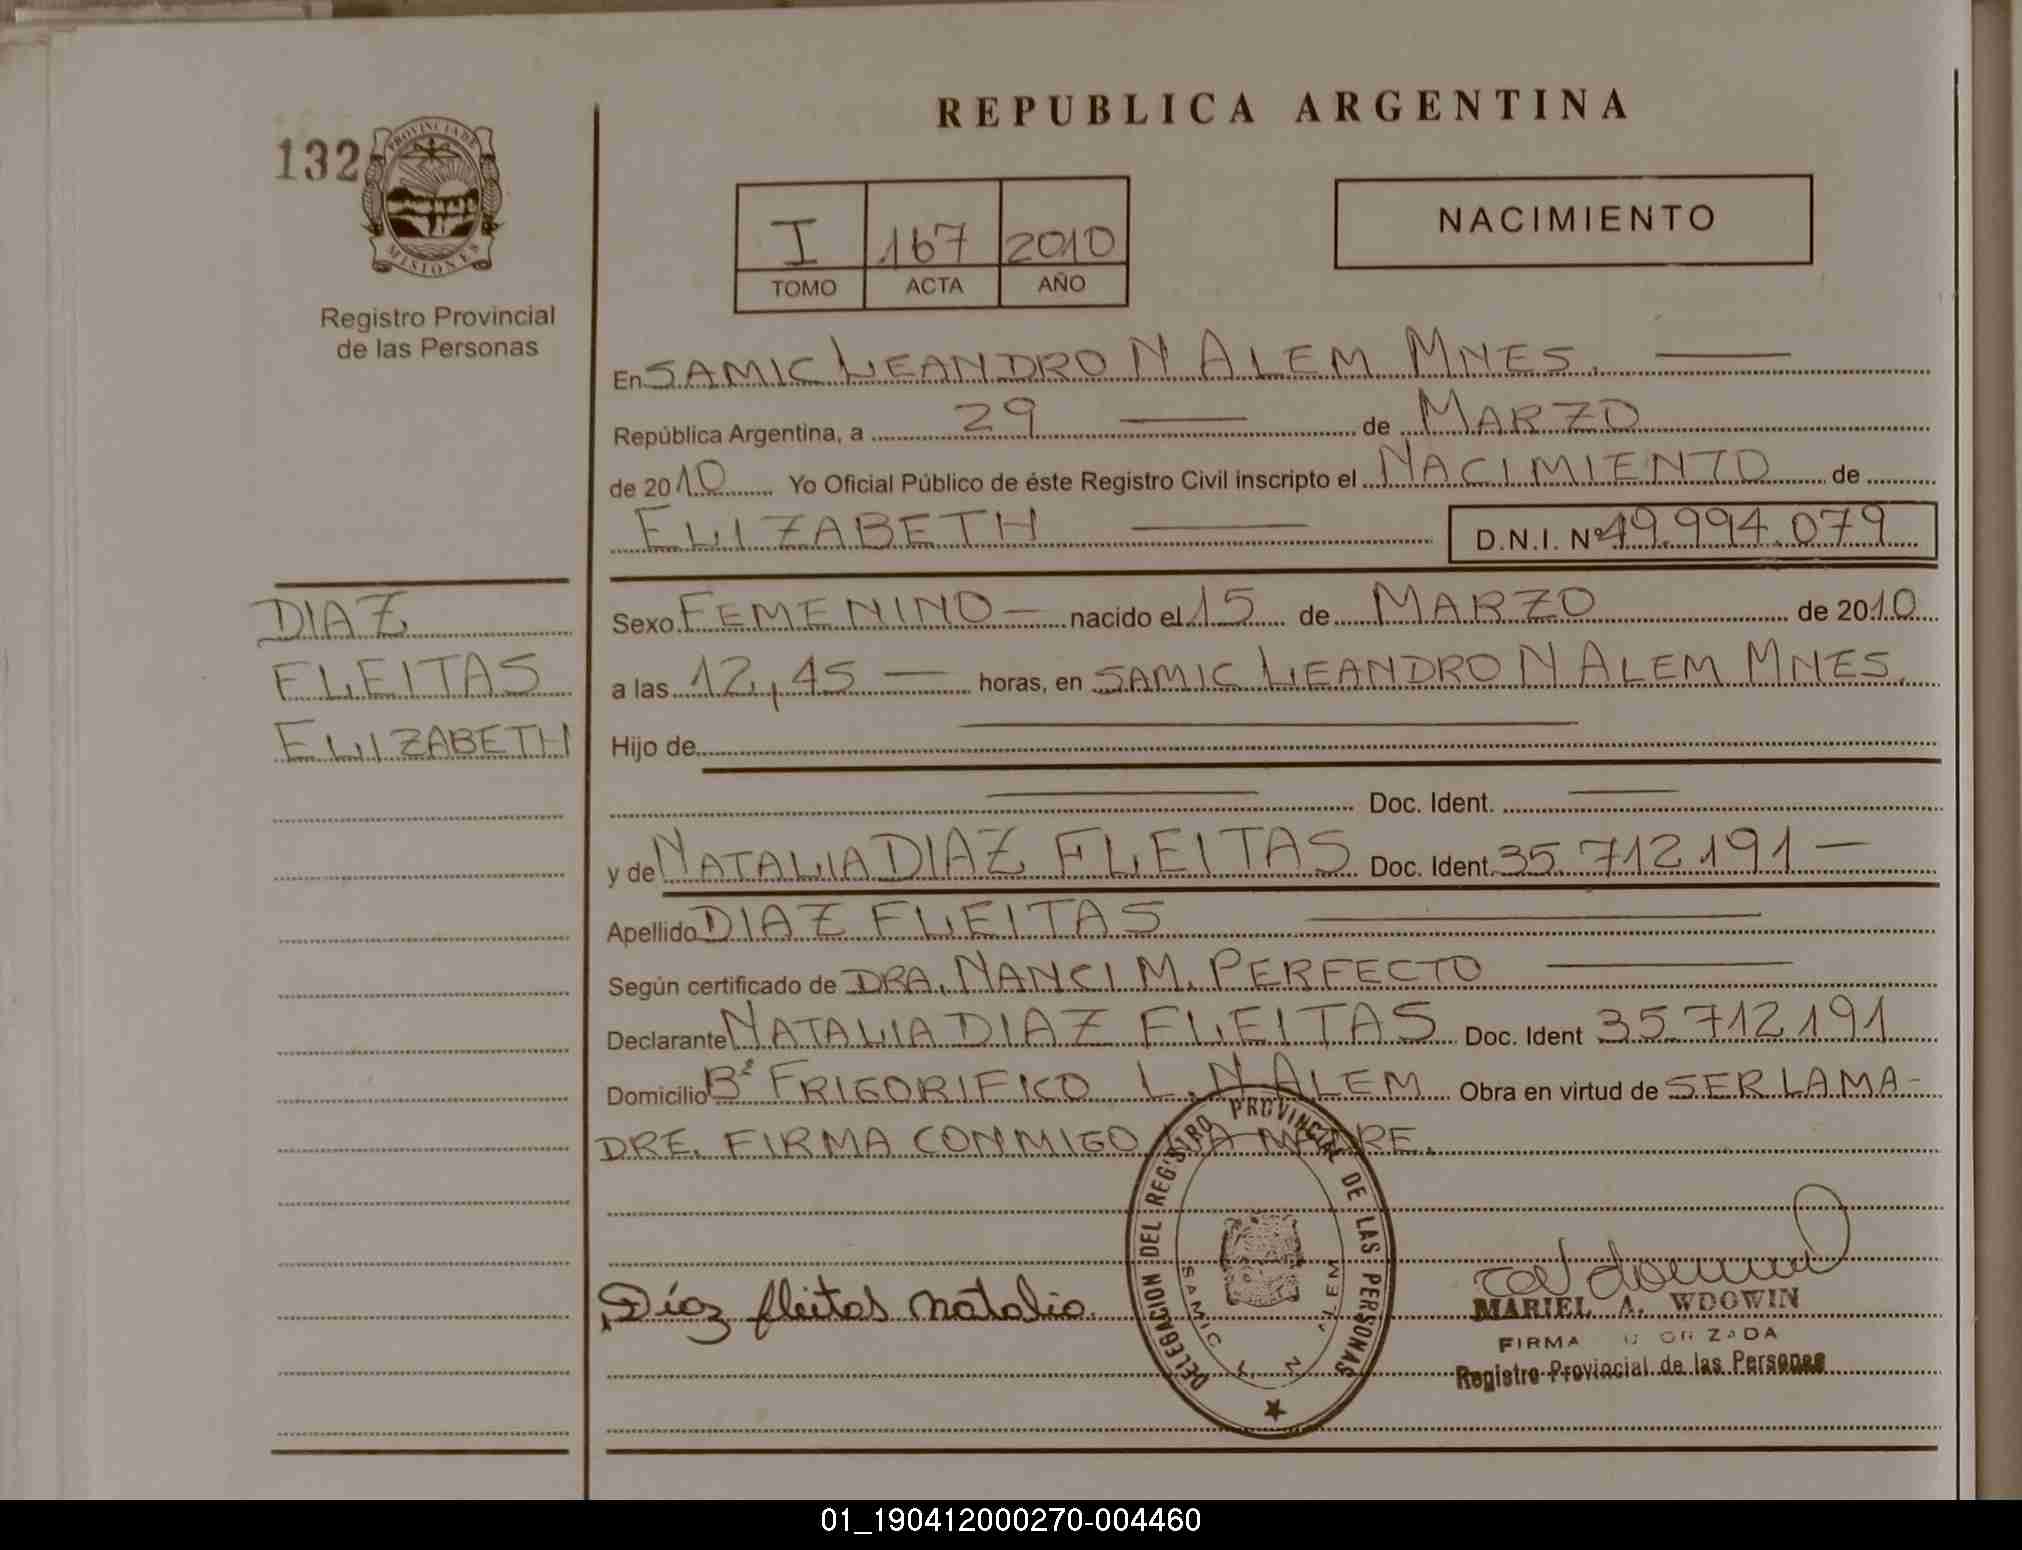 REPUBLICA ARGENTINA
132
PROVINCIA DE
MISIONES
Registro Provincial
de las Personas
I 167 2010
TOMO ACTA AÑO
NACIMIENTO
En SAMIC LEANDRO N ALEM MNES.
República Argentina, a 29 de MARZO
de 2010 Yo Oficial Público de éste Registro Civil inscripto el NACIMIENTO de
ELIZABETH D.N.I. Nº 49.994.079
DIAZ
FLEITAS
ELIZABETH
Sexo FEMENINO nacido el 15 de MARZO de 2010
a las 12,45 horas, en SAMIC LEANDRO N ALEM MNES.
Hijo de
Doc. Ident.
y de NATALIA DIAZ FLEITAS Doc. Ident. 35.712.191
Apellido DIAZ FLEITAS
Según certificado de DRA. NANCI M. PERFECTO
Declarante NATALIA DIAZ FLEITAS Doc. Ident 35.712.191
Domicilio Bº FRIGORIFICO L. N ALEM Obra en virtud de SER LA MA-
DRE. FIRMA CONMIGO LA MADRE.
DELEGACION DEL REGISTRO PROVINCIAL DE LAS PERSONAS
SAMIC L. N.
Díaz fleitas natalia.
MARIEL A. WDOWIN
FIRMA
Registro Provincial de las Personas
01_190412000270-004460